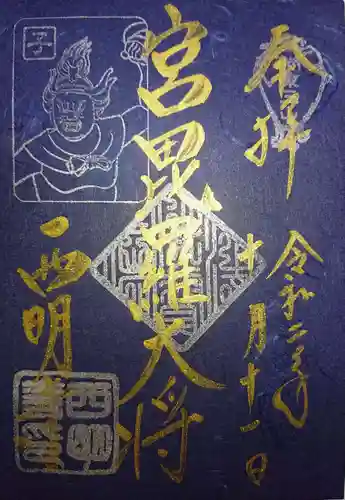 奉拝
令和二年
十一月十一日
宮毘羅大将
子
西明寺